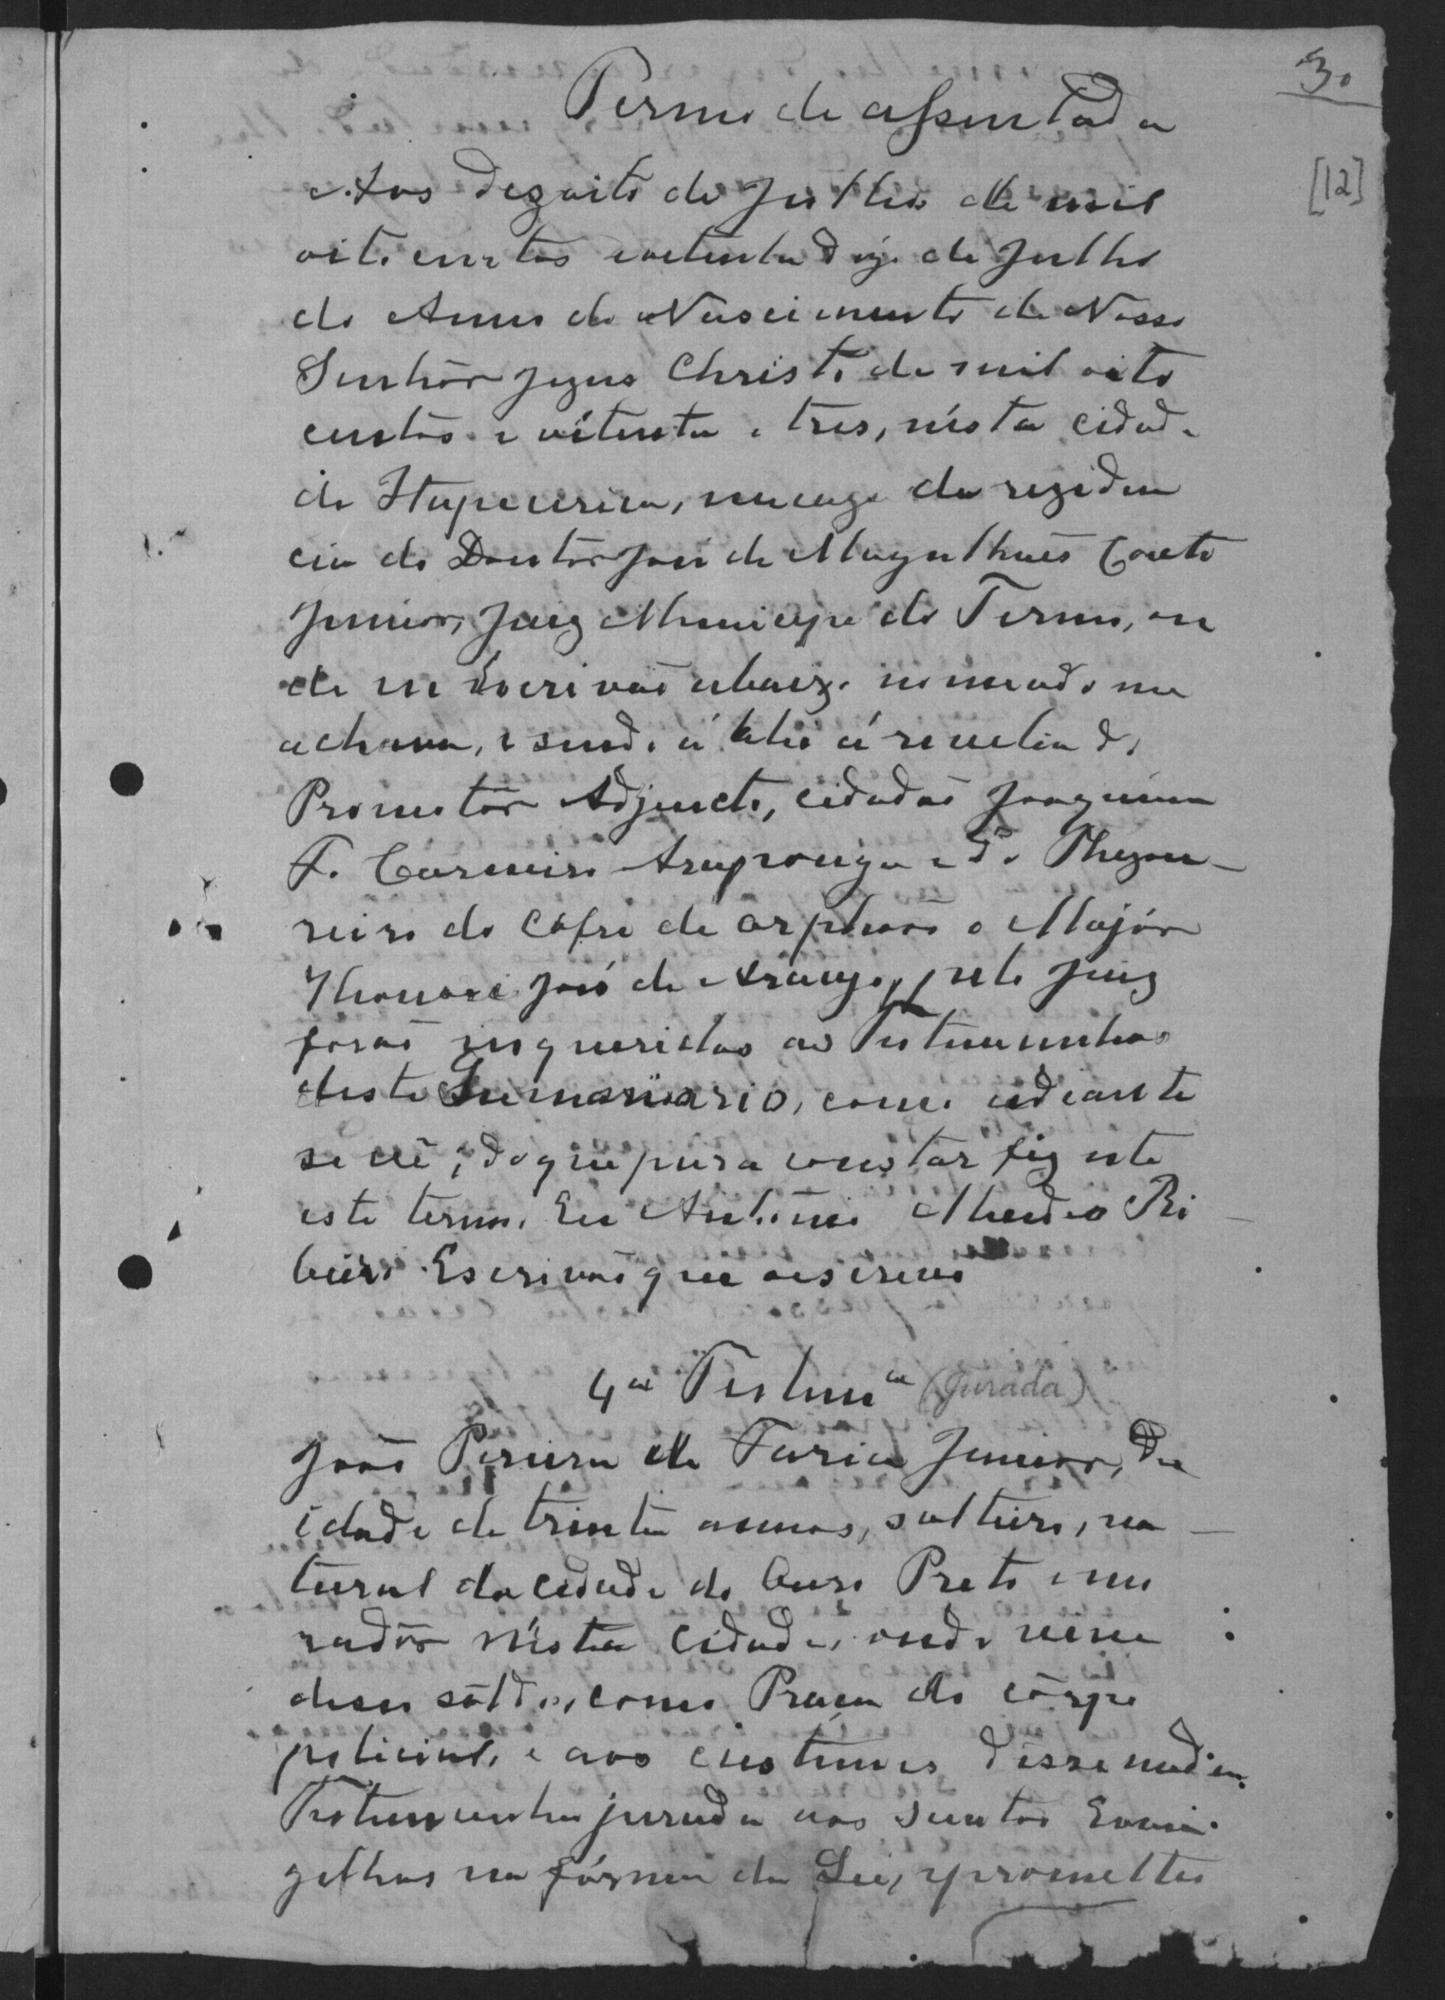 30
[12]
Termo de assentada
Aos dezoito de Julho de mil
oitocentos e oitenta digo de Julho
do Anno do Nascimento de Nosso
Senhôr Jezus Christo de mil oito
centos e oitenta e tres, nésta cidade
de Itapecerica, em caza da reziden
cia do Doutôr José de Magalhaẽs Couto
Junior, Juiz Municipe do Termo, on
de eu Escrivaõ abaixo nomeado me
achava, e sendo á revelia do
Promotôr Adjuncto, cidadaõ Joaquim
F. Carneiro Araponga e do Thezou
reiro do Cófre de orphaõs o Majór
José de Araujo, pelo Juiz
foraõ inqueridas as Testemunhas
deste Summario, como adiante
se vê; do que para constar fiz este
este termo. Eu Antonio Mendes Ri
beiro Escrivaõ que o escrevi
4ª Testemª (jurada)
Joaõ Pereira de Faria Junior, de
idade de trinta annos, solteiro, na
tural da cidade do Ouro Preto e mo
radôr nésta cidade, onde vive
de seu sôldo, como Praça do côrpo
policial, e aos custumes disse nada.
Testemunha jurada aos Santos Evan
gelhos na fórma da Lei, e prometteo